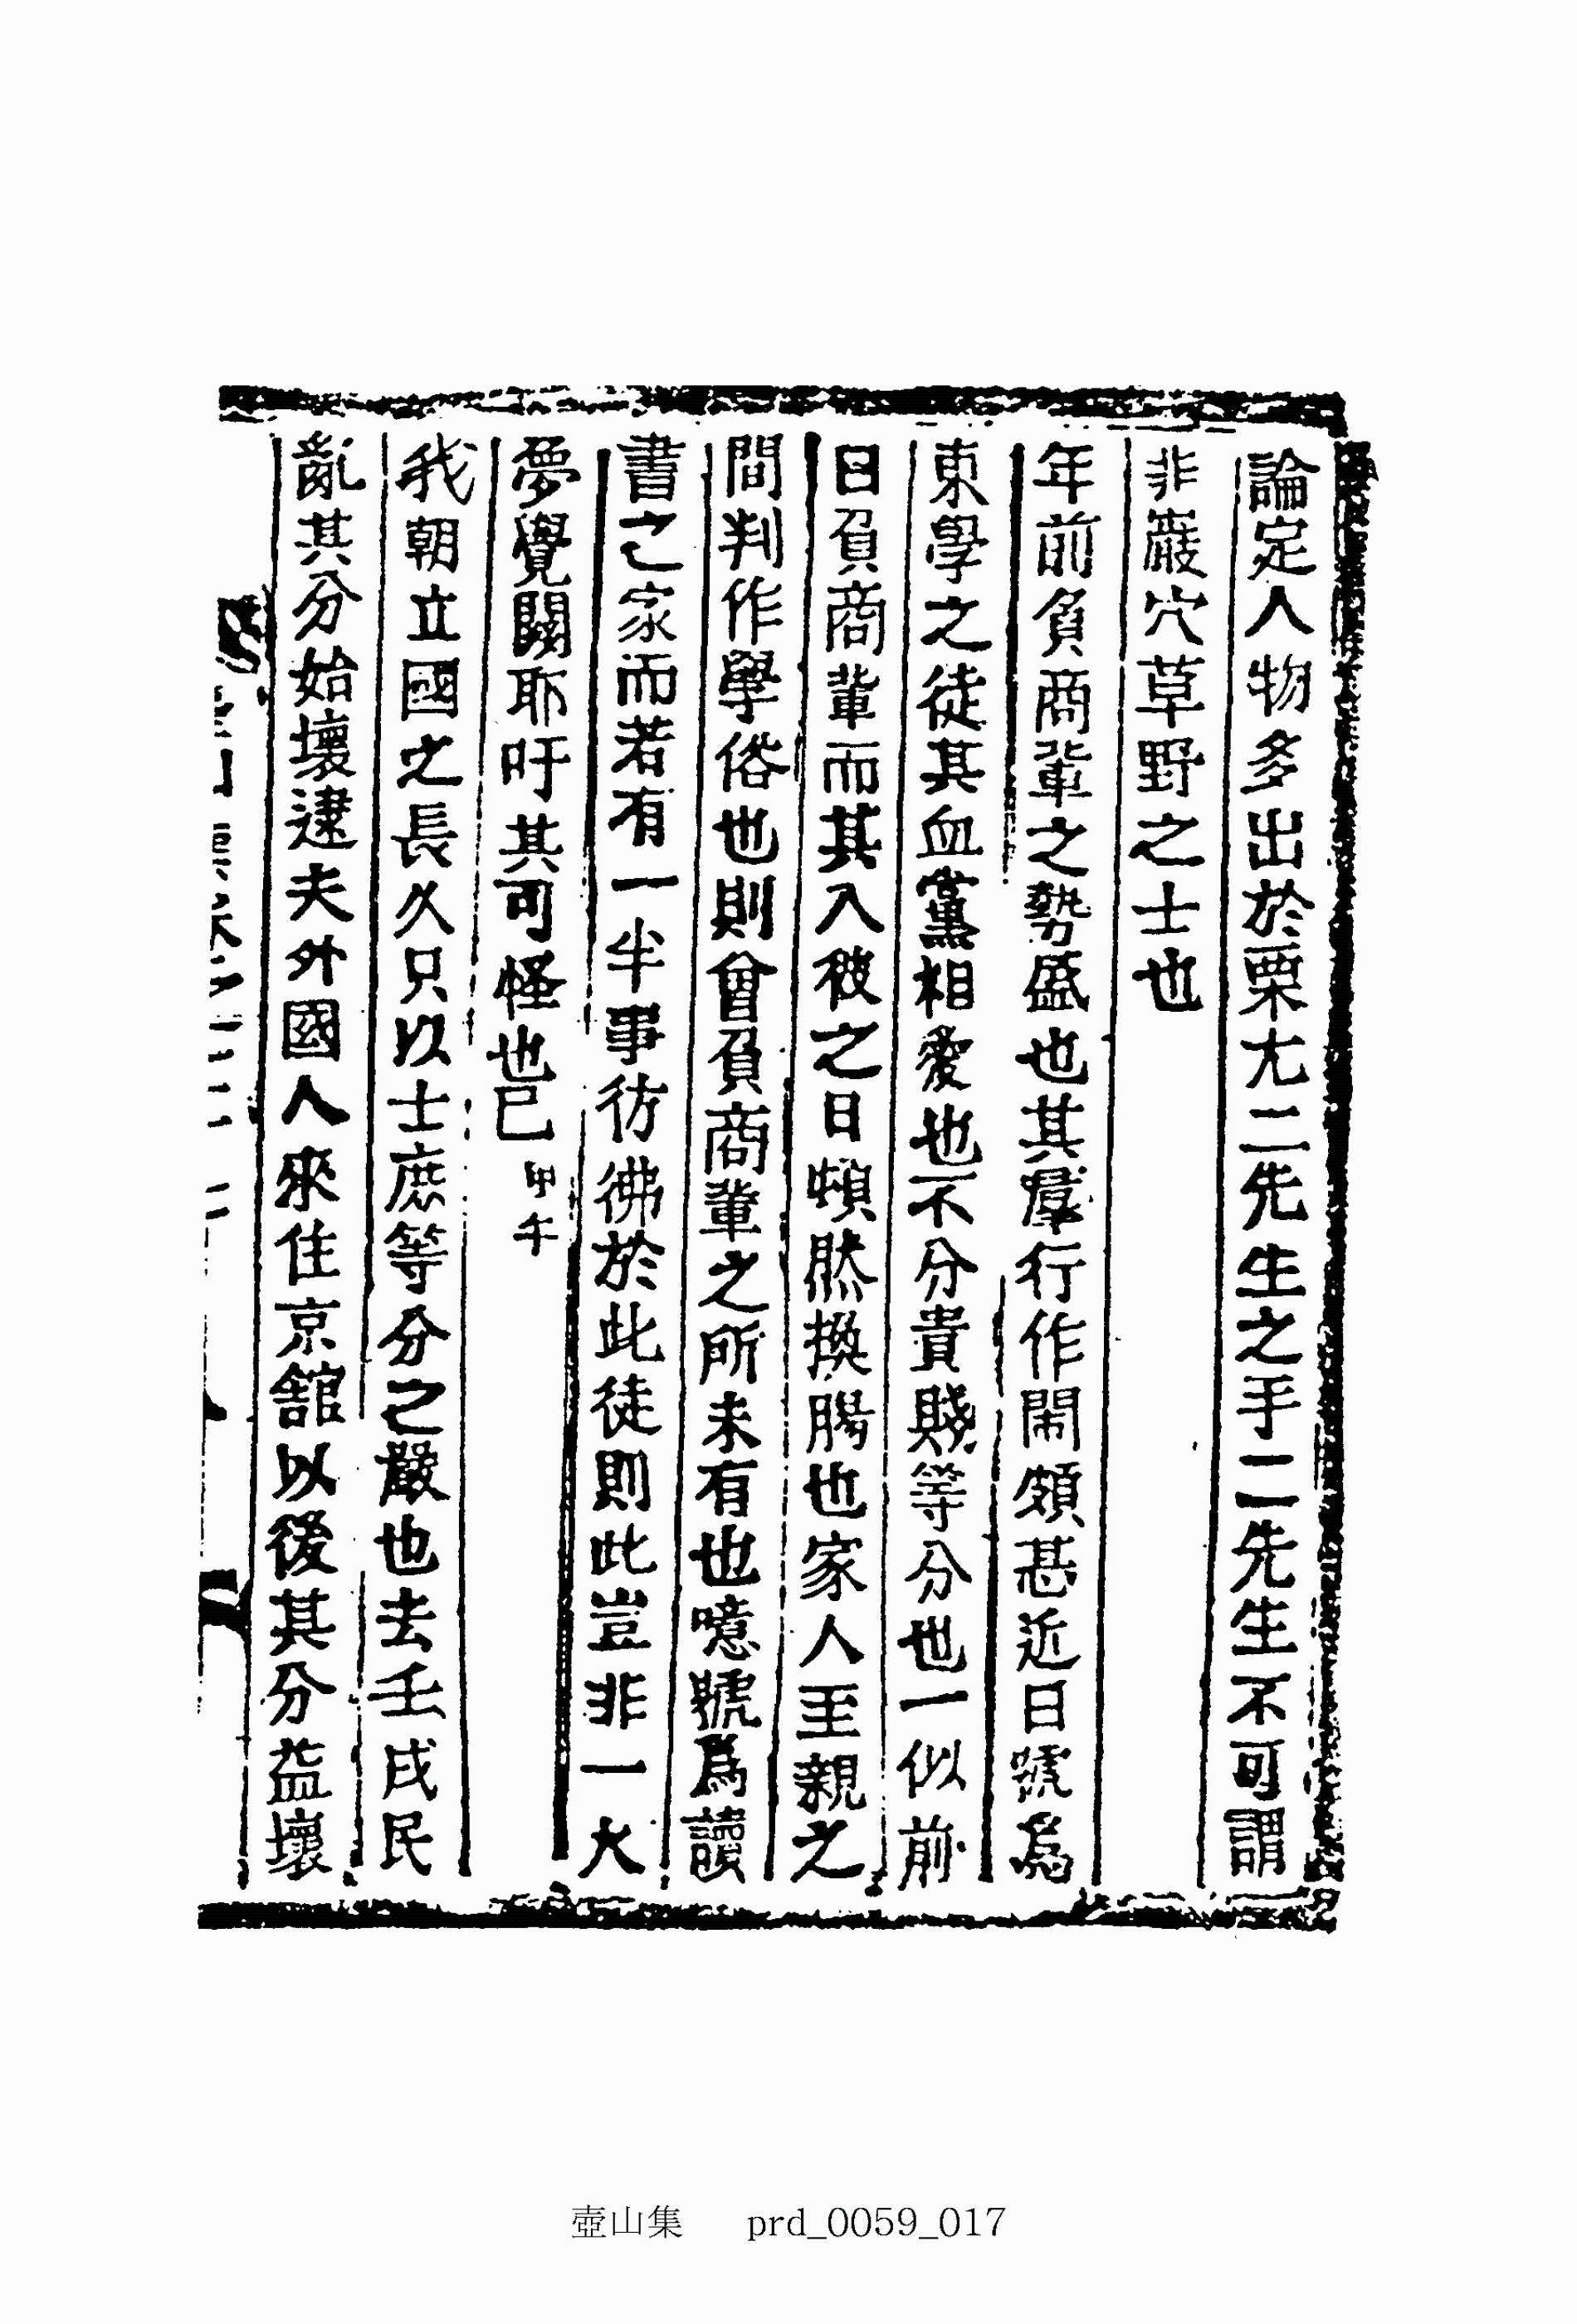 論定人物多出於栗尤二先生之手二先生不可謂
非巖穴草野之士也
年前負商輩之勢盛也其羣行作閙頗甚近日號爲
東學之徒其血黨相愛也不分貴賤等分也一似前
日負商輩而其入彼之日頓然換腸也家人至親之
間判作學俗也則曾負商輩之所未有也噫號爲讀
書之家而若有一半事彷彿於此徒則此豈非一大
夢覺關耶吁其可怪也已 甲午
我朝立國之長久只以士庶等分之嚴也去壬戌民
亂其分始壞逮夫外國人來住京舘以後其分益壞
壺山集 prd_0059_017